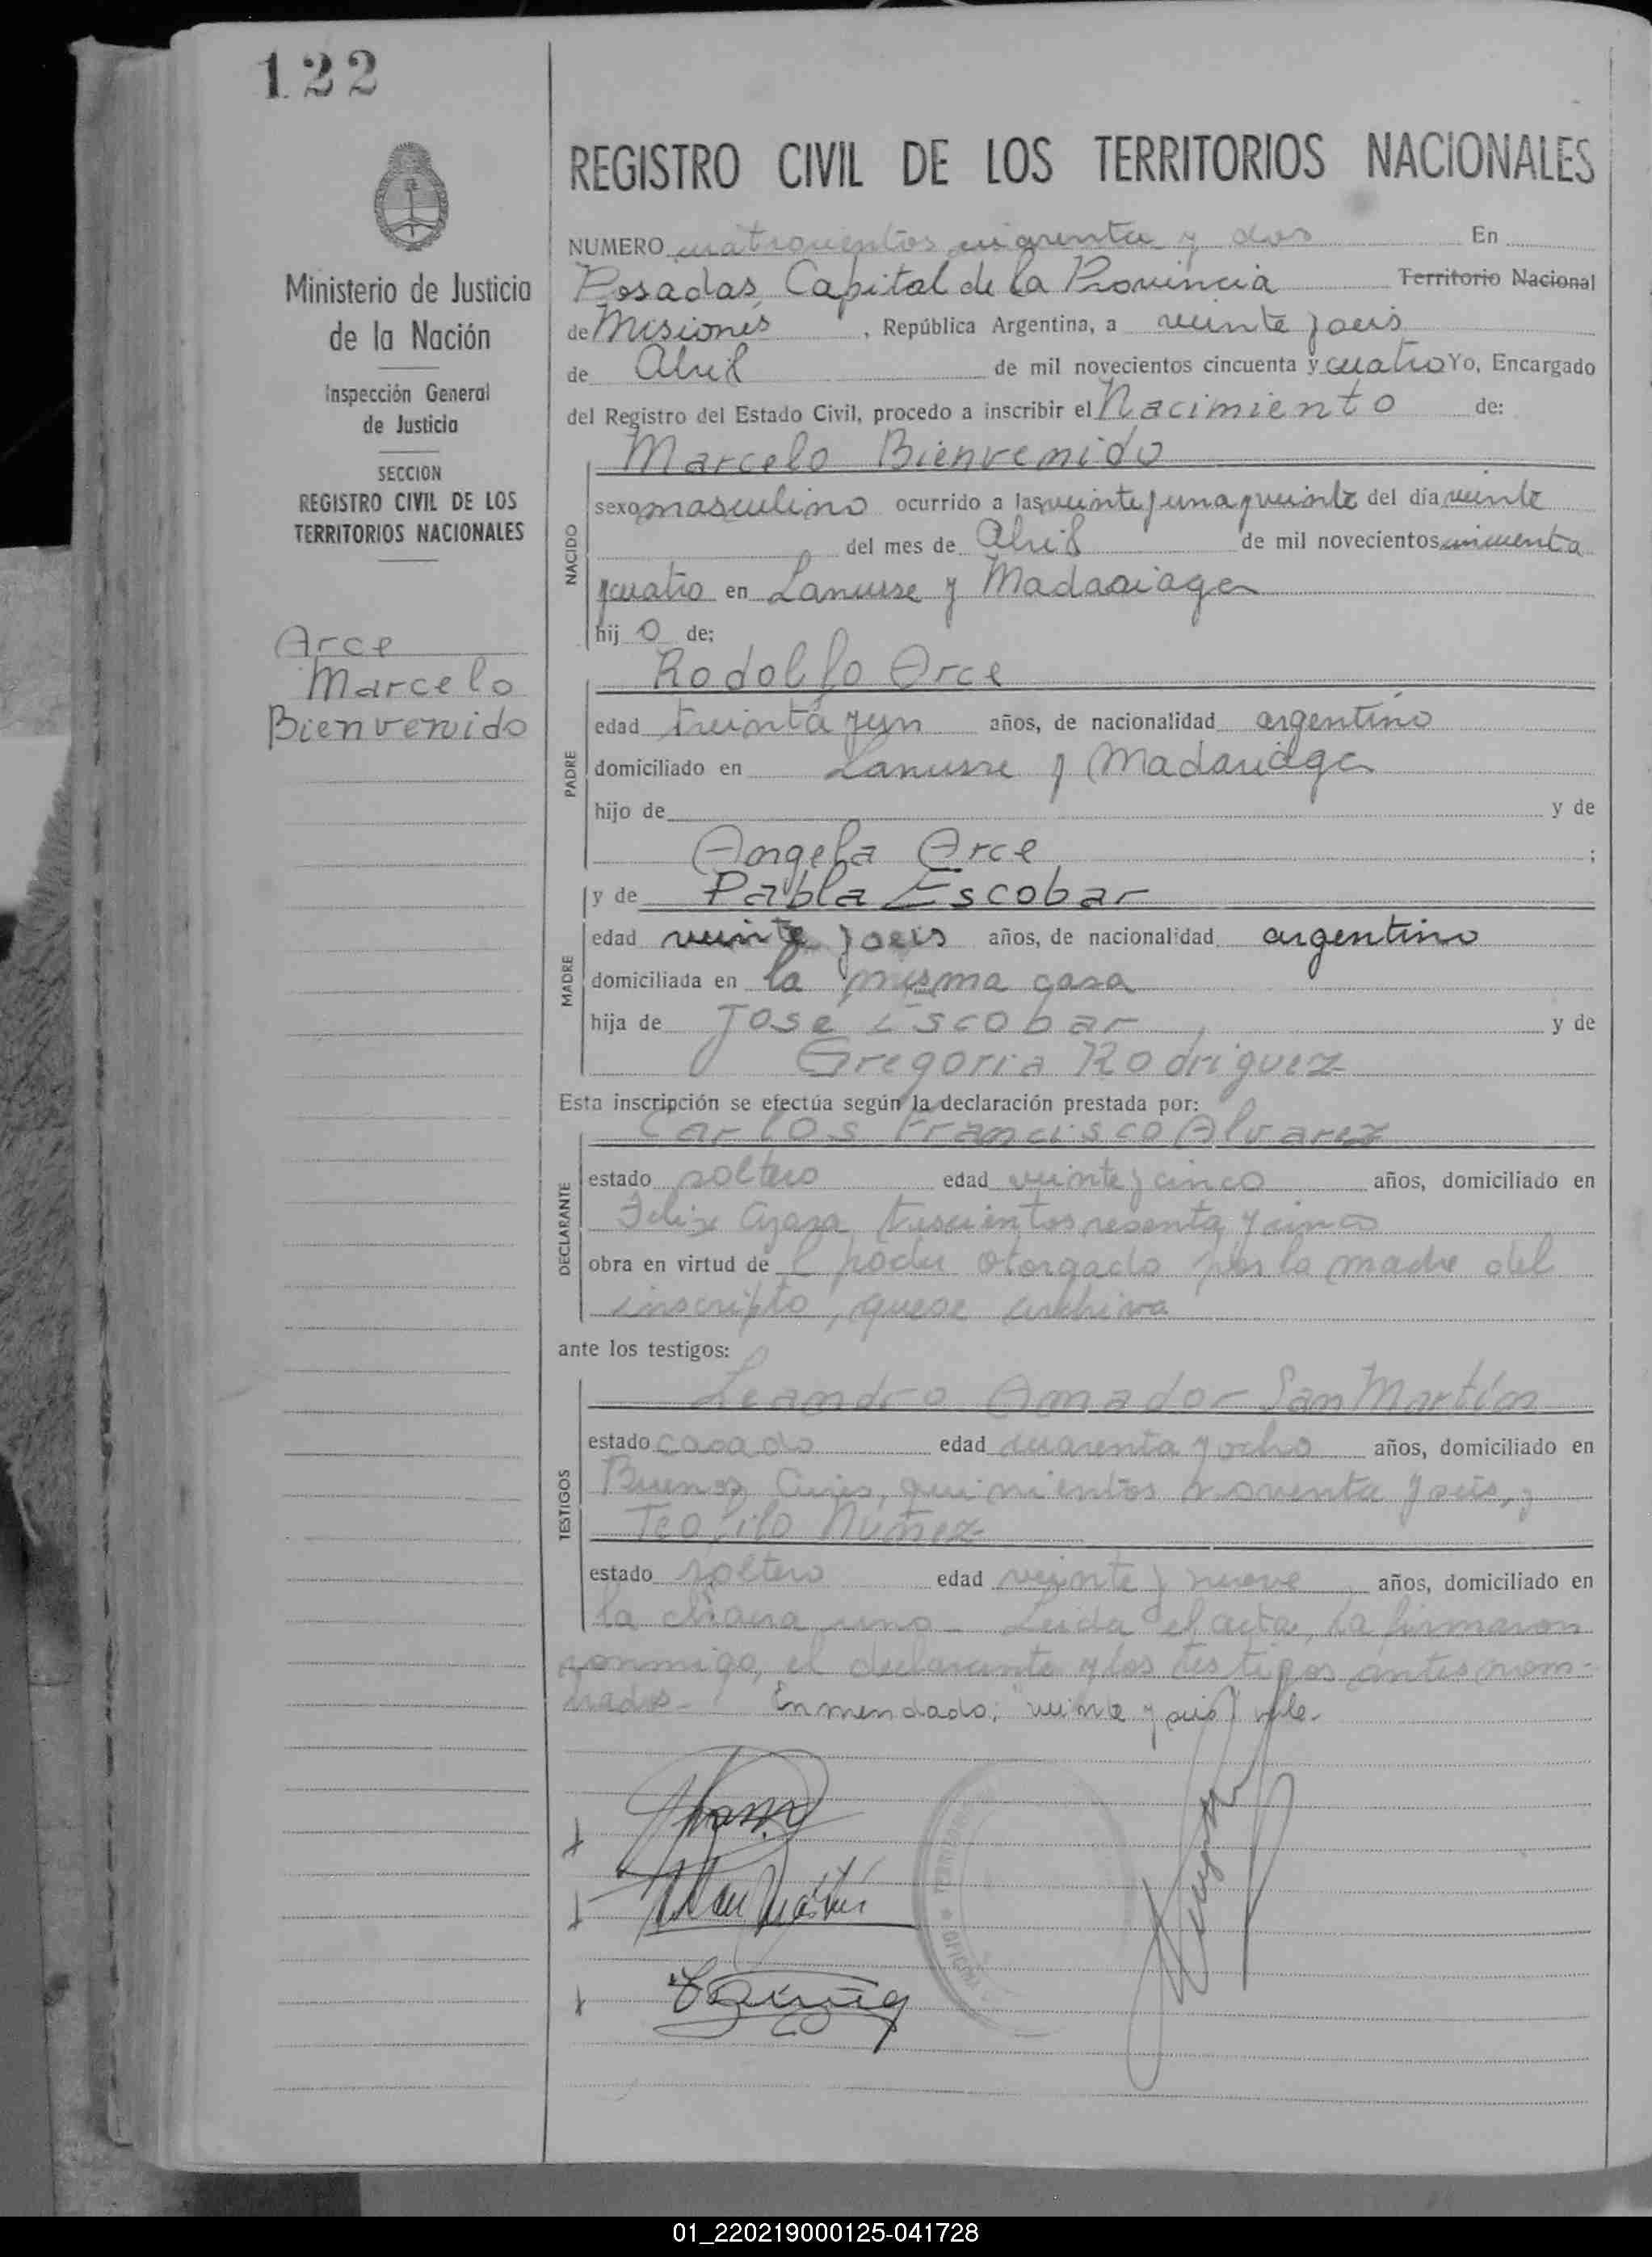 122
Ministerio de Justicia
de la Nación
Inspección General
de Justicia
SECCION
REGISTRO CIVIL DE LOS
TERRITORIOS NACIONALES
Arce
Marcelo
Bienvenido
REGISTRO CIVIL DE LOS TERRITORIOS NACIONALES
NUMERO cuatrocientos cuarenta y dos En
Posadas, Capital de la Provincia Territorio Nacional
de Misiones, República Argentina, a veinte y seis
de Abril de mil novecientos cincuenta y cuatro Yo, Encargado
del Registro del Estado Civil, procedo a inscribir el Nacimiento de:
Marcelo Bienvenido
NACIDO
sexo masculino ocurrido a las veinte y una y veinte del día veinte
del mes de Abril de mil novecientos cincuenta
y cuatro en Lanusse y Madariaga
hijo de;
Rodolfo Arce
PADRE
edad treinta y un años, de nacionalidad argentino
domiciliado en Lanusse y Madariaga
hijo de y de
Angela Arce ;
y de Pabla Escobar
MADRE
edad veinte y seis años, de nacionalidad argentino
domiciliada en la misma casa
hija de José Escobar, y de
Gregoria Rodriguez
Esta inscripción se efectúa según la declaración prestada por:
Carlos Francisco Alvarez
DECLARANTE
estado soltero edad veinte y cinco años, domiciliado en
Felix Azara trescientos sesenta y cinco
obra en virtud de l poder otorgado por la madre del
inscripto, que se archiva
ante los testigos:
Leandro Amador San Martín
TESTIGOS
estado casado edad cuarenta y ocho años, domiciliado en
Buenos Aires, quinientos noventa y seis, y
Teofilo Nuñez
estado soltero edad veinte y nueve años, domiciliado en
la chacra uno. Leída el acta, la firmaron
conmigo, el declarante y los testigos antes nom-
brados. Enmendado: "veinte y seis" vale.
OFICINA
01_220219000125-041728